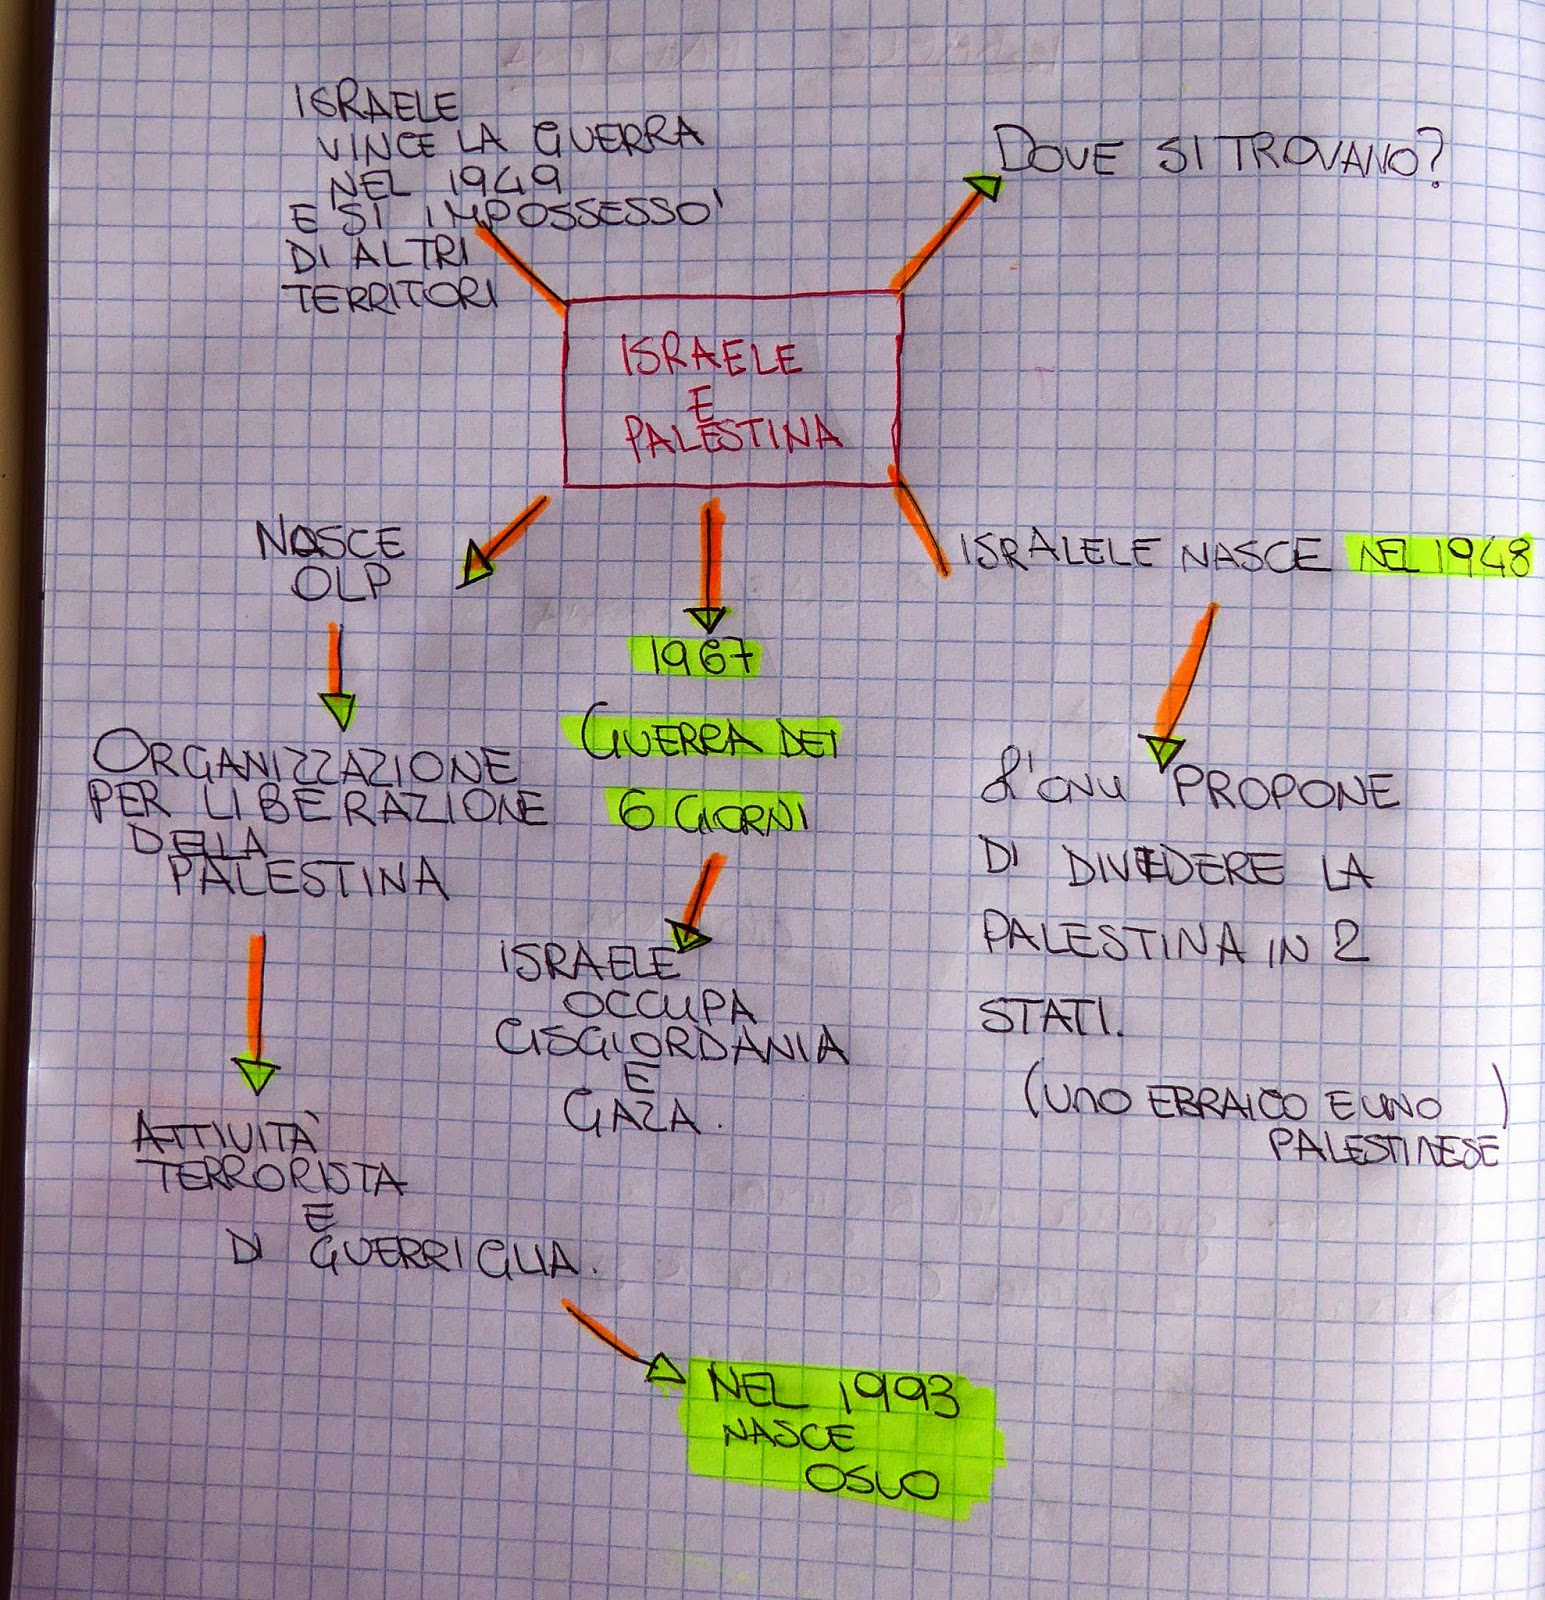 ISRAELE
VINCE LA GUERRA
NEL 1949
E SI IMPOSSESSO'
DI ALTRI
TERRITORI
DOVE SI TROVANO?
ISRAELE
E
PALESTINA
NASCE
OLP
ORGANIZZAZIONE
PER LIBERAZIONE
DELLA
PALESTINA
ATTIVITÀ
TERRORISTA
E
DI GUERRIGLIA.
NEL 1993
NASCE
OSLO
1967
GUERRA DEI
6 GIORNI
ISRAELE
OCCUPA
CISGIORDANIA
E
GAZA.
ISRALELE NASCE NEL 1948
L'ONU PROPONE
DI DIVEDERE LA
PALESTINA IN 2
STATI.
(UNO EBRAICO E UNO
PALESTINESE)